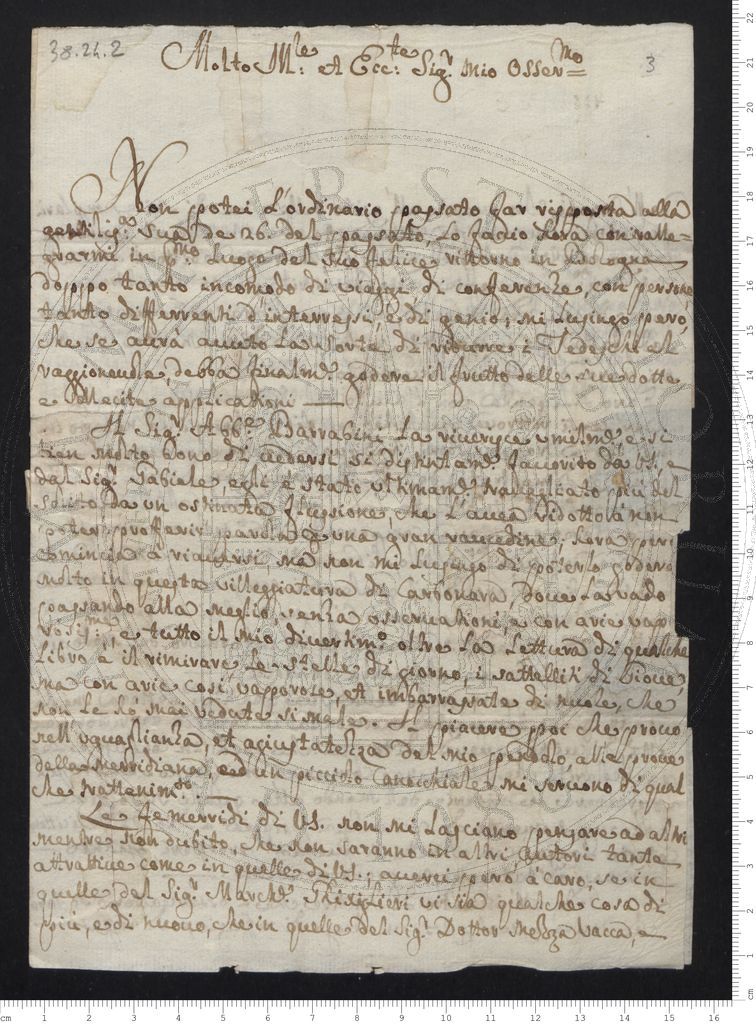 38.24.2
3
Molto Ill:re et Ecc:te Sig.r mio Osser.mo
Non potei l'ordinario passato far risposta alla
gentiliss.a sua de 26. del passato, lo faccio hora con ralle=
grarmi in p.mo luogo del suo felice ritorno in Bologna
doppo tanto incomodo di viaggi di conferenze, con persone
tanto differenti d'interressi, e di genio; mi lusingo però,
che se avrà avuto la sorte di ridurre i Tedeschi al
raggionevole, debba finalm.e godere il frutto delle sue dotte
e applicationi
Il Sig.r Abb.e Barrabini la riverisce umilm.e e si
tien molto bono di vedersi si distintam.e favorito da VS. e
dal Sig.r Gabiele, egli è stato ultimam.e travagliato più del
solito da un ostinata flussione, che l'avea ridotto a non
poter profferir parola e una gran raucedine; hora però
comincia a riaversi, ma non mi lusingo di poterlo godere
molto in questa villeggiatura di Carbonara, dove la vado
passando alla meglio, senza osservationi, e con arie vap
rosiss:me, e tutto il mio divertim.o oltre la lettura di qualche
libro è il rimirare le stelle di giorno, i sattelliti di Giove,
ma con arie così vapporose, et imbarrassate di nuvole, che
non le hò mai vedute si male. Il piacere poi che provo
nell'uguaglianza, et agiustatezza del mio pendolo, alle prove
della merridiana, ed un picciolo Canocchiale mi servono di qual
che trattenim.to
Le femerridi di VS. non mi lasciano pensare ad altri
mentre non dubito, che non saranno in altri autori tante
attrattive come in quelle di VS.; averei però à caro, se in
quelle del Sig.r March.e Ghixiglieri vi sia qualche cosa di
più, e di nuovo, che in quelle del Sig.r Dottor Mezza vacca, e